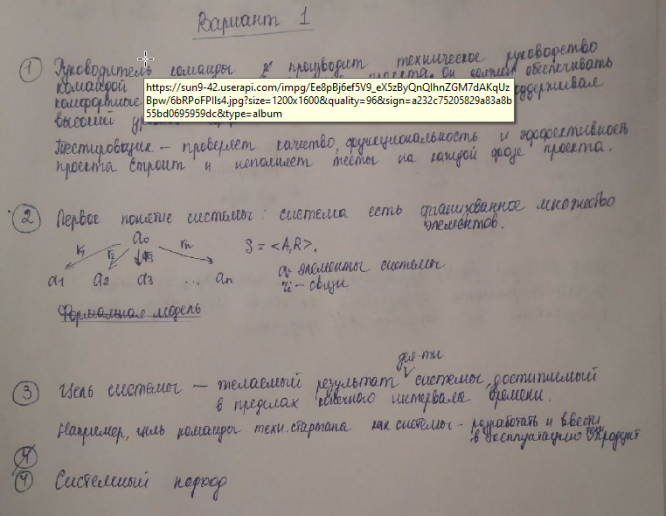 Вариант 1
① Руководитель команды производит техническое руководство
командой проекта. Он должен обеспечивать
комфортные поддерживая
высокий
https://sun9-42.userapi.com/impg/Ee8pBj6ef5V9_eX5zByQnQIhnZGM7dAKqUz
Bpw/6bRPoFPIls4.jpg?size=1200x1600&quality=96&sign=a232c75205829a83a8b
55bd0695959dc&type=album
Тестировщик – проверяет качество, функциональность и эффективность
проекта строит и исполняет тесты на каждой фазе проекта.
② Первое понятие системы: система есть организованное множество
элементов.
a₀
r₁ r₂ r₃ rₙ
S = <A,R>.
a₁ a₂ a₃ ... aₙ
aᵢ – элементы системы
rᵢ – связи
Формальная модель
дея-ти
③ Цель системы – желаемый результат системы, достижимый
в пределах конечного интервала времени.
Например, цель команды техн. стартапа как системы – разработать и ввести
в эксплуатацию продукт
④
④ Системный подход